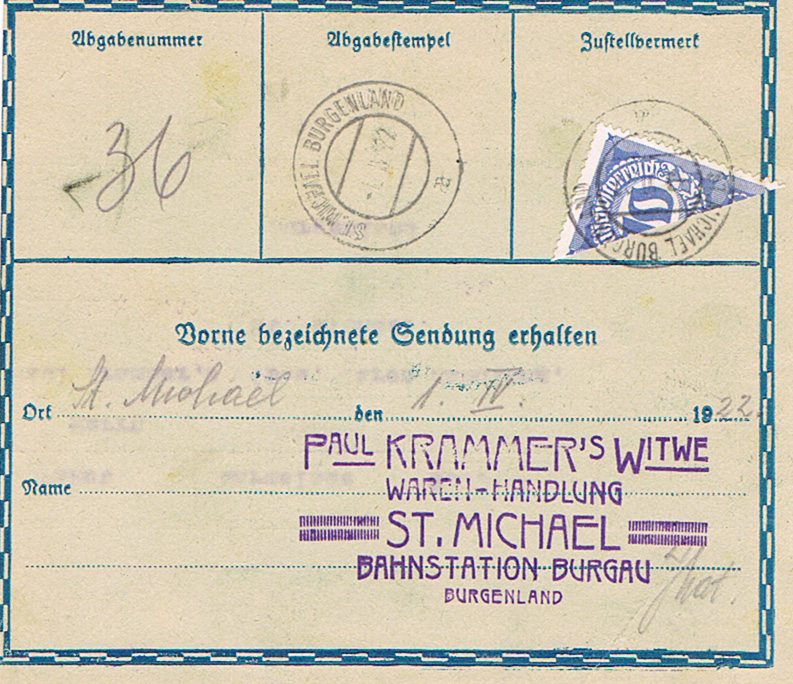 Abgabenummer Abgabestempel Zustellvermerk
36
ST. MICHAEL BURGENLAND
a
10
MICHAEL BURGEN
Vorne bezeichnete Sendung erhalten
Ort St. Michael den 1. IV. 1922.
PAUL KRAMMER'S WITWE
Name WAREN-HANDLUNG
ST. MICHAEL
BAHNSTATION BURGAU
BURGENLAND